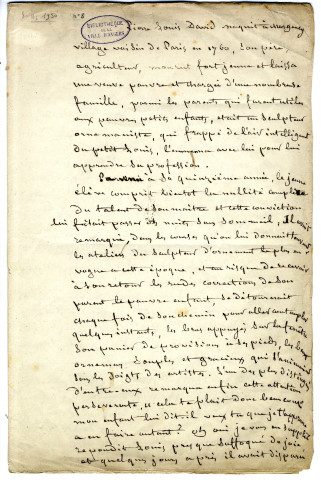 n° 8
BIBLIOTHÈQUE
DE LA
VILLE D'ANGERS
Pierre Louis David naquit à Margency
village voisin de Paris en 1760, son père,
agriculteur, mourut fort jeune et laissa
une veuve pauvre et chargée d'une nombreuse
famille, parmi les parents qui furent utiles
aux pauvres petits enfants, etait un sculpteur
ornemaniste, qui frappé de l'air intelligent
du petit Louis, l'emmena avec lui pour lui
apprendre sa profession.
Parvenu à sa quinzième année, le jeune
élève comprit bientot la nullité complète
du talent de son maitre et cette conviction
lui faisait passer des nuits sans sommeil. Il avait
remarqué, dans les courses qu'on lui donnait
les ateliers du sculpteur d'ornement le plus en
vogue a cette époque, et au risque de recevoir
à son retour les rudes correction de son
parent le pauvre enfant, se détournait
chaque fois de son chemin pour aller contempler
quelques instants, les bras appuyés sur la fenêtre
son panier de provisions à ses pieds, les beaux
ornemens souples et gracieux qui
sous les doigts des artistes. L'un des plus distingués
d'entre eux remarqua enfin cette attention
perseverante, cela te plait donc beaucoup
mon enfant lui dit il veux tu que je t'apprenne
a en faire autant? oh oui je vous en supplie
repondit Louis presque suffoqué de joie
et quelques jours après il avait disparu